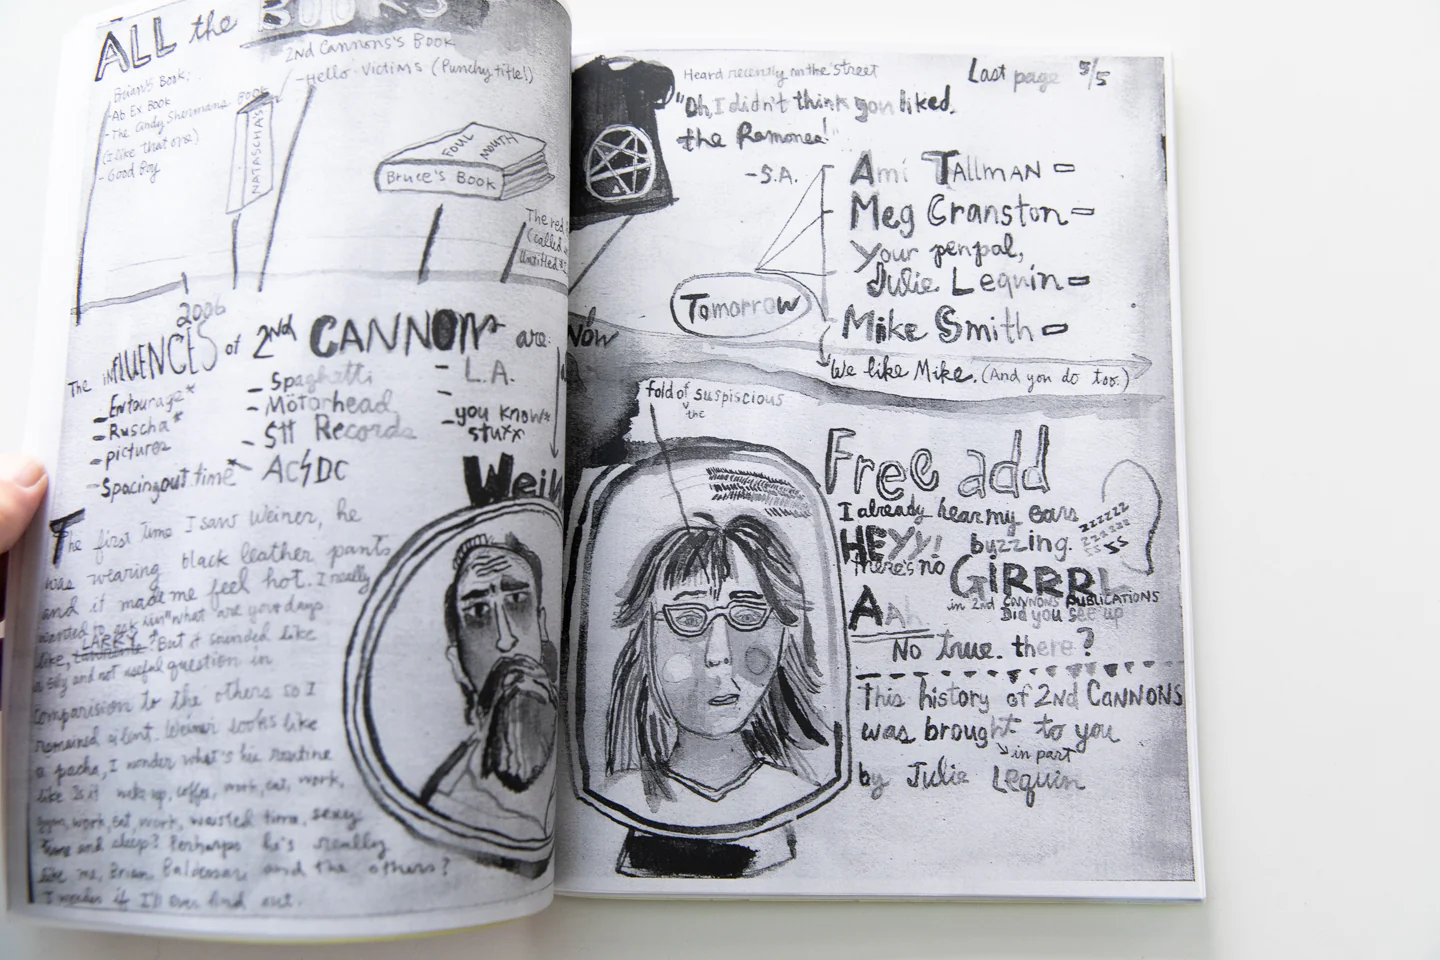 ALL the BOOKS
2nd Cannons's Book
-Hello Victims (Punchy title!)
Brian's Book:
-Ab Ex Book
-The Cindy Shermans Book
(I like that one)
-Good Boy
NATASCHA'S
FOUL MOUTH
Bruce's Book
The red
(called
Untitled
2006
The iNFLUENCES of 2nd CANNON are:
-Entourage*
-Ruscha*
-pictures
-Spacing out time*
-Spaghetti
-Mötorhead
-SST Records
AC⚡DC
-L.A.
-you know*
stuxx
Wein
The first time I saw Weiner, he
was wearing black leather pants
and it made me feel hot. I really
wanted to ask him "what are your days
like, LARRY?" But it sounded like
a silly and not useful question in
comparision to the others so I
remained silent. Weiner looks like
a pacha, I wonder what's his routine
like Is it wake up, coffee, work, eat, work,
gym, work, eat, work, waisted time, sexy
time and sleep? Perharps he's really
like me, Brian, Baldessari and the others?
I wonder if I'll ever find out.
Heard recently on the street
"Oh, I didn't think you liked
the Ramones!"
Last page 5/5
-S.A.
Ami TALLMAN
Meg Cranston
your penpal,
Julie Lequin
Tomorrow
Mike Smith
Now
We like Mike. (And you do too.)
fold of the suspiscious
Free add
I already hear my ears
buzzing.
zzzzzz
zzazzz
ss ss
HEYY!
there's no GIRRRL
in 2nd CANNONS PUBLICATIONS
AAh
Did you see up
No true. there?
This history of 2nd CANNONS
was brought to you
in part
by Julie Lequin